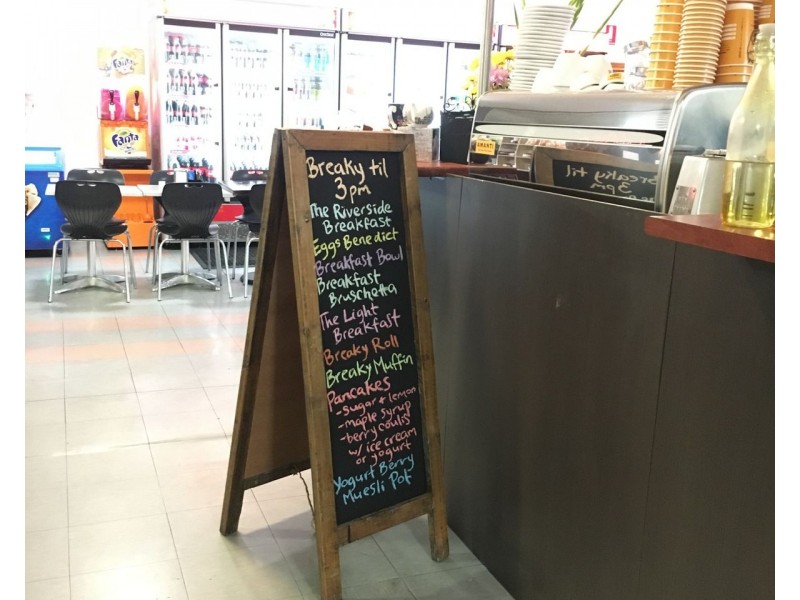 Breaky til
3pm
The Riverside
Breakfast
Eggs Benedict
Breakfast Bowl
Breakfast
Bruschetta
The Light
Breakfast
Breaky Roll
Breaky Muffin
Pancakes
-sugar + lemon
-maple syrup
-berry coulis
w/ ice cream
or yogurt
Yogurt Berry
Muesli Pot
Fanta
Fanta
Breaky til
3pm